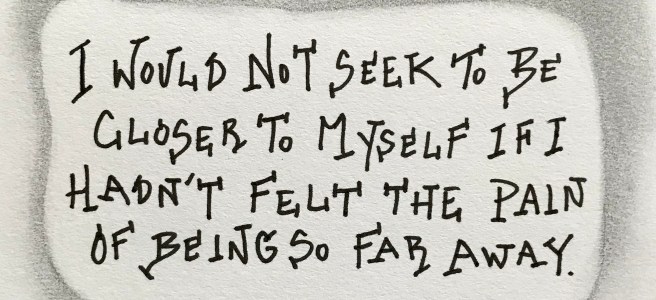 I WOULD NOT SEEK TO BE
CLOSER TO MYSELF IF I
HADN'T FELT THE PAIN
OF BEING SO FAR AWAY.